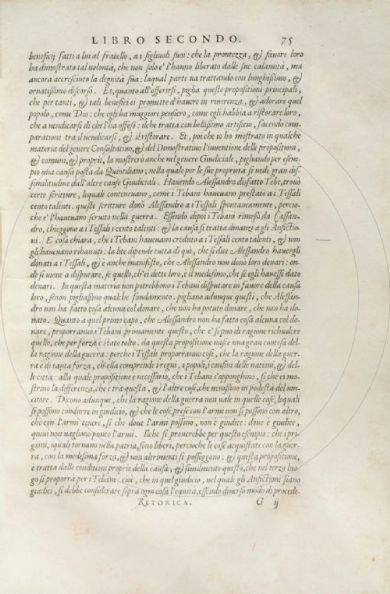 LIBRO SECONDO. 75
beneficij fatti a lui al fratello, a i figliuoli suoi: che la prontezza, & fauore loro
ha dimostrato tal uolontà, che non solo e' l'hanno liberato dalle sue calamità, ma
ancora accresciuto la degnità sua: laqual parte ua trattando con lunghissimo, &
ornatissimo discorso. Et, quanto all'offerirsi, piglia queste propositioni principali,
che per tanti, & tali beneficij ei promette d'hauere in reuerenza, & adorar quel
popolo, come Dio: che egli ha maggior pensiero, come egli habbia a ristorar loro,
che a uendicarsi di chi l'ha offeso: & che tratta con bellissimo artificio, facendo com-
parationi tra il uendicarsi, & il ristorare. Et, poi che io ho mostrato in qualche
materia del genere Consultatiuo, & del Demostratiuo l'inuentione delle propositioni,
& comuni, & proprie, la mosterrò anche nel genere Giudiciale, pigliando per esem-
pio una causa posta da Quintiliano, nella quale per le sue proprietà si uede gran dis-
similitudine dall'altre cause Giudiciali. Hauendo Alessandro disfatto Tebe, trouò
certe scritture, lequali conteneuano, come i Tebani haueuano prestato a i Tessali
cento talenti. queste scritture donò Alessandro a i Tessali spontaneamente, perciò-
che e' l'haueuano seruito nella guerra. Essendo dipoi i Tebani rimessi da Cassan-
dro, chieggono a i Tessali i cento talenti: & la causa si tratta dinanzi a gli Anfictio-
ni. E' cosa chiara, che i Tebani haueuano creduto a i Tessali cento talenti, & non
gli haueuano rihauuti: la lite dipende tutta di quì, che si dice Alessandro hauergli
donati a i Tessali, & è anche manifesto, che Alessandro non donò loro denari: on-
de si uiene a disputare, se quello, ch'ei dette loro, è il medesimo, che se egli hauesse dato
denari. In questa materia non potrebbono i Tebani disputare in fauore della causa
loro, se non pigliassino qualche fondamento. pigliano adunque questi, che Alessan-
dro non ha fatto cosa alcuna col donare, che non ha potuto donare, che non ha do-
nato. Quanto a quel primo capo, che Alessandro non ha fatto cosa alcuna col do-
nare, proporranno i Tebani primamente questo, che e' si può di ragione richiedere
quello, che per forza è stato tolto. da questa propositione nasce una gran contesa del-
la ragione della guerra: perche i Tessali proporranno cosi, che la ragione della guer-
ra è di tanta forza, ch'ella comprende i regni, i popoli, i confini delle nationi, & del-
le città: alla quale propositione è necessario, che i Tebani s'appongano, si che ei mo-
strino la differenza, che è tra questa, & l'altre cose, che uenissino in podestà del uin-
citore. Dicono adunque, che la ragione della guerra non uale in quelle cose, lequali
si possono condurre in giudicio, & che le cose prese con l'armi non si possono con altro,
che con l'armi tenere, si che doue l'armi possono, non è giudice: doue è giudice,
quiui non uagliono punto l'armi. Il che si prouerrebbe per questo esempio: che i pri-
gioni, quali tornano nella patria, sono liberi, percioche le cose acquistate con la guer-
ra, con la medesima forza, & non altrimenti si posseggono: & questa propositione,
e tratta dalle conditioni proprie della causa, & similmente questo, che nel terzo luo-
go si proporrà per i Tebani: cioè, che in quel giudicio, nel quale gli Anfictioni siano
giudici, si debbe considerare sopra ogni cosa l'equità, essendo diuerso modo di procede-
RETORICA. G ij